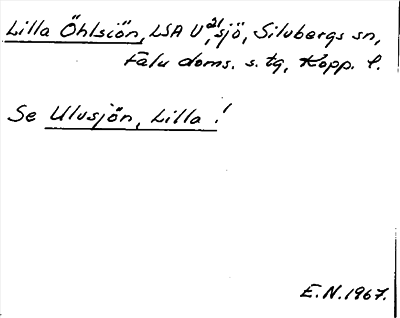 Lilla Öhlsiön, LSA U 21, sjö, Silvbergs sn,
Falu doms. s. tg, Kopp. l.
Se Ulvsjön, Lilla!
E.N. 1967.